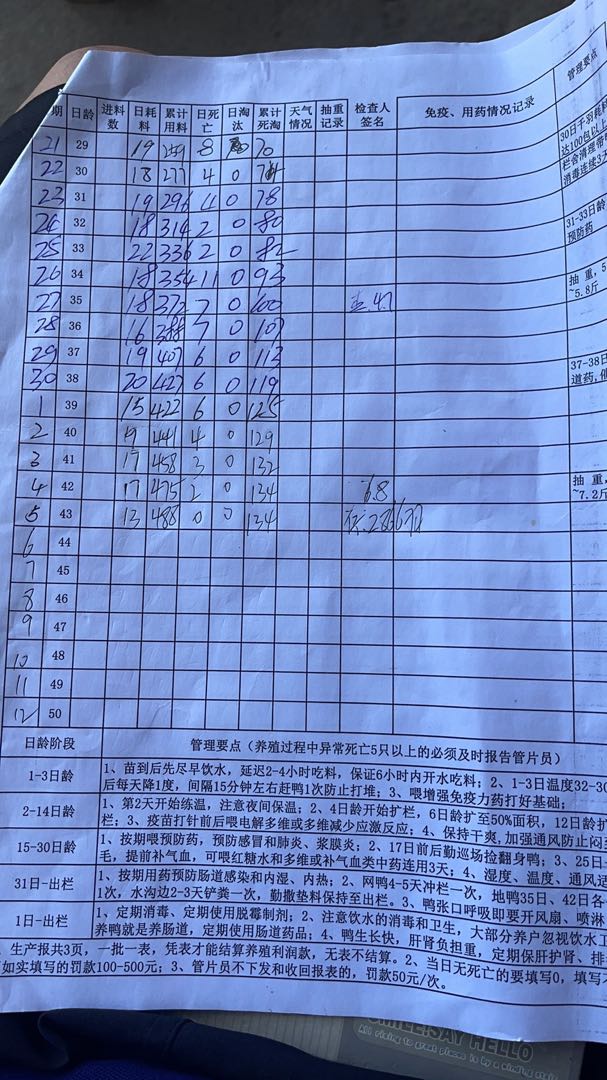 期 日龄 进料数 日耗料 累计用料 日死亡 日淘汰 累计死淘 天气情况 抽重记录 检查人签名 免疫、用药情况记录 管理要点
21 29 19 259 8 70
22 30 18 277 4 0 74
23 31 19 296 4 0 78
24 32 18 314 2 0 80
25 33 22 336 2 0 82
26 34 18 354 11 0 93
27 35 18 372 7 0 100 4.7
28 36 16 388 7 0 107
29 37 19 407 6 0 113
30 38 20 427 6 0 119
1 39 15 422 6 0 125
2 40 19 441 4 0 129
3 41 17 458 3 0 132
4 42 17 475 2 0 134 6.8
5 43 13 488 0 0 134
6 44
7 45
8 46
9 47
10 48
11 49
12 50
30日千羽耗料
达100包以上
栏舍清理带
消毒连续3
31-33日龄
预防药
抽重,5
~5.8斤
37-38日
道药,催
抽重,
~7.2斤
日龄阶段 管理要点(养殖过程中异常死亡5只以上的必须及时报告管片员)
1-3日龄 1、苗到后先尽早饮水,延迟2-4小时吃料,保证6小时内开水吃料;2、1-3日温度32-30
后每天降1度,间隔15分钟左右赶鸭1次防止打堆;3、喂增强免疫力药打好基础;
2-14日龄 1、第2天开始练温,注意夜间保温;2、4日龄开始扩栏,6日龄扩至50%面积,12日龄扩
栏;3、疫苗打针前后喂电解多维或多维减少应激反应;4、保持干爽,加强通风防止闷
15-30日龄 1、按期喂预防药,预防感冒和肺炎、浆膜炎;2、17日前后勤巡场捡翻身鸭;3、25日
毛,提前补气血,可喂红糖水和多维或补气血类中药连用3天;4、湿度、温度、通风适
31日-出栏 1、按期用药预防肠道感染和内湿、内热;2、网鸭4-5天冲栏一次,地鸭35日、42日各
1次,水沟边2-3天铲粪一次,勤撒垫料保持至出栏。3、鸭张口呼吸即要开风扇、喷淋
1日-出栏 1、定期消毒、定期使用脱霉制剂;2、注意饮水的消毒和卫生,大部分养户忽视饮水工
养鸭就是养肠道,定期使用肠道药品;4、鸭生长快,肝肾负担重,定期保肝护肾、排
、生产报共3页,一批一表,凭表才能结算养殖利润款,无表不结算。2、当日无死亡的要填写0,填写不
如实填写的罚款100-500元;3、管片员不下发和收回报表的,罚款50元/次。
SMILE!SAY HELLO
All rising to great places is by a winding stair